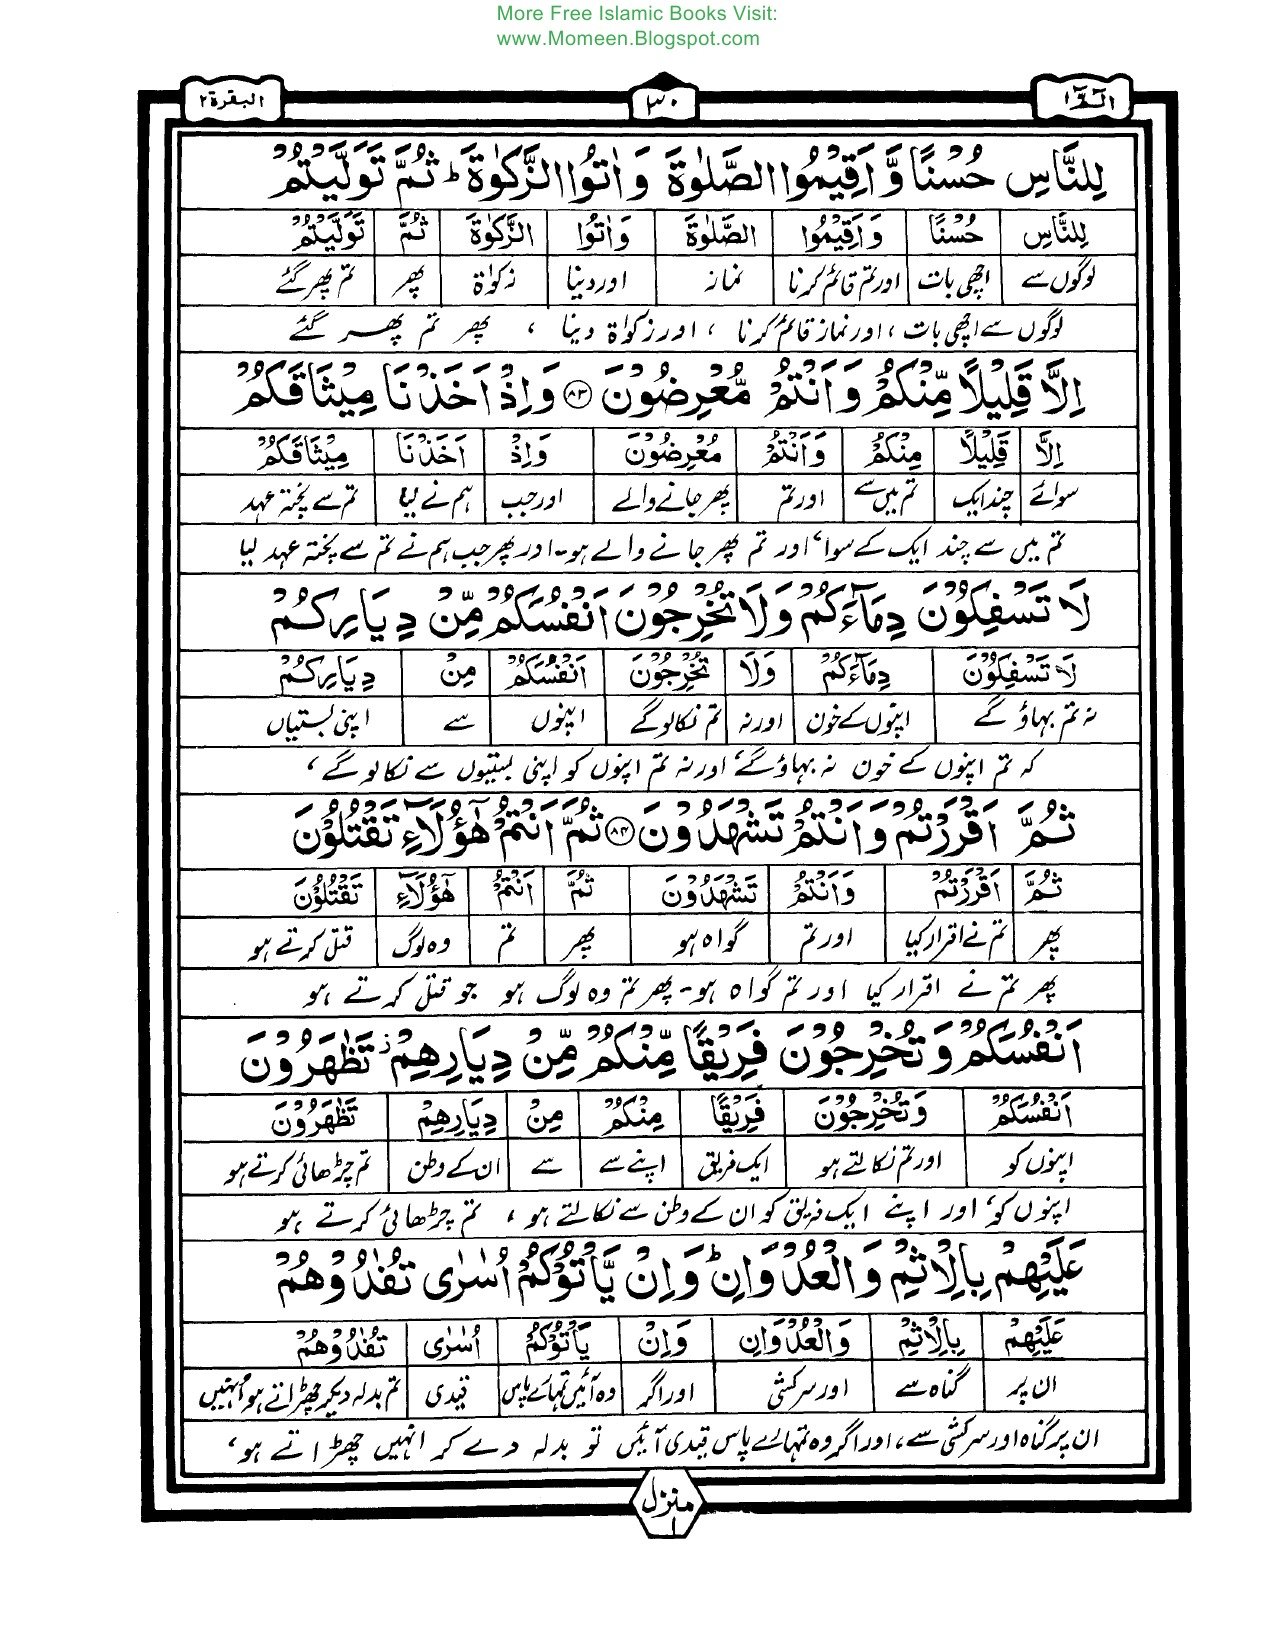 More Free Islamic Books Visit:
www.Momeen.Blogspot.com
البقرة ٢ ٣٠ الٓمّٓ ١
لِلنَّاسِ حُسْنًا وَّاَقِيْمُوا الصَّلٰوةَ وَاٰتُوا الزَّكٰوةَ ؕ ثُمَّ تَوَلَّيْتُمْ
لِلنَّاسِ حُسْنًا وَاَقِيْمُوا الصَّلٰوةَ وَاٰتُوا الزَّكٰوةَ ثُمَّ تَوَلَّيْتُمْ
لوگوں سے اچھی بات اور تم قائم کرنا نماز اور دینا زکوٰۃ پھر تم پھر گئے
لوگوں سے اچھی بات ، اور نماز قائم کرنا ، اور زکوٰۃ دینا ، پھر تم پھر گئے
اِلَّا قَلِيْلًا مِّنْكُمْ وَاَنْتُمْ مُّعْرِضُوْنَ ﴿۸۳﴾ وَاِذْ اَخَذْنَا مِيْثَاقَكُمْ
اِلَّا قَلِيْلًا مِنْكُمْ وَاَنْتُمْ مُعْرِضُوْنَ وَاِذْ اَخَذْنَا مِيْثَاقَكُمْ
سوائے چند ایک تم میں سے اور تم پھر جانے والے اور جب ہم نے لیا تم سے پختہ عہد
تم میں سے چند ایک کے سوا، اور تم پھر جانے والے ہو۔ اور پھر جب ہم نے تم سے پختہ عہد لیا
لَا تَسْفِكُوْنَ دِمَآءَكُمْ وَلَا تُخْرِجُوْنَ اَنْفُسَكُمْ مِّنْ دِيَارِكُمْ
لَا تَسْفِكُوْنَ دِمَآءَكُمْ وَلَا تُخْرِجُوْنَ اَنْفُسَكُمْ مِنْ دِيَارِكُمْ
نہ تم بہاؤ گے اپنوں کے خون اور نہ تم نکالو گے اپنوں سے اپنی بستیاں
کہ تم اپنوں کے خون نہ بہاؤ گے، اور نہ تم اپنوں کو اپنی بستیوں سے نکالو گے ،
ثُمَّ اَقْرَرْتُمْ وَاَنْتُمْ تَشْهَدُوْنَ ﴿۸۴﴾ ثُمَّ اَنْتُمْ هٰٓؤُلَآءِ تَقْتُلُوْنَ
ثُمَّ اَقْرَرْتُمْ وَاَنْتُمْ تَشْهَدُوْنَ ثُمَّ اَنْتُمْ هٰٓؤُلَآءِ تَقْتُلُوْنَ
پھر تم نے اقرار کیا اور تم گواہ ہو پھر تم وہ لوگ قتل کرتے ہو
پھر تم نے اقرار کیا اور تم گواہ ہو۔ پھر تم وہ لوگ ہو جو قتل کرتے ہو
اَنْفُسَكُمْ وَتُخْرِجُوْنَ فَرِيْقًا مِّنْكُمْ مِّنْ دِيَارِهِمْ ز تَظٰهَرُوْنَ
اَنْفُسَكُمْ وَتُخْرِجُوْنَ فَرِيْقًا مِنْكُمْ مِنْ دِيَارِهِمْ تَظٰهَرُوْنَ
اپنوں کو اور تم نکالتے ہو ایک فریق اپنے سے سے ان کے وطن تم چڑھائی کرتے ہو
اپنوں کو، اور اپنے ایک فریق کو ان کے وطن سے نکالتے ہو ، تم چڑھائی کرتے ہو
عَلَيْهِمْ بِالْاِثْمِ وَالْعُدْوَانِ ؕ وَاِنْ يَّاْتُوْكُمْ اُسٰرٰى تُفٰدُوْهُمْ
عَلَيْهِمْ بِالْاِثْمِ وَالْعُدْوَانِ وَاِنْ يَاْتُوْكُمْ اُسٰرٰى تُفٰدُوْهُمْ
ان پر گناہ سے اور سرکشی اور اگر وہ آئیں تمہارے پاس قیدی تم بدلہ دیکر چھڑاتے ہو انہیں
ان پر گناہ اور سرکشی سے ، اور اگر وہ تمہارے پاس قیدی آئیں تو بدلہ دے کر انہیں چھڑاتے ہو ،
منزل ١